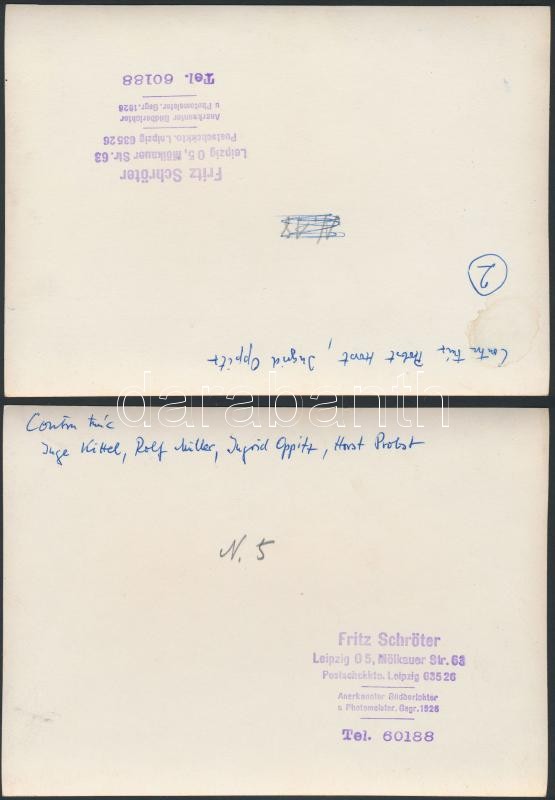 Tel. 60188
Anerkannter Bildberichter
u Photomeister. Gegr. 1926
Postscheckkto. Leipzig 63526
Leipzig O 5, Mölkauer Str. 63
Fritz Schröter
2
Probst Horst, Ingrid Oppitz
darabanth
Inge Kittel, Rolf Müller, Ingrid Oppitz, Horst Probst
N. 5
Fritz Schröter
Leipzig O 5, Mölkauer Str. 63
Postscheckkto. Leipzig 63526
Anerkannter Bildberichter
u Photomeister. Gegr. 1926
Tel. 60188